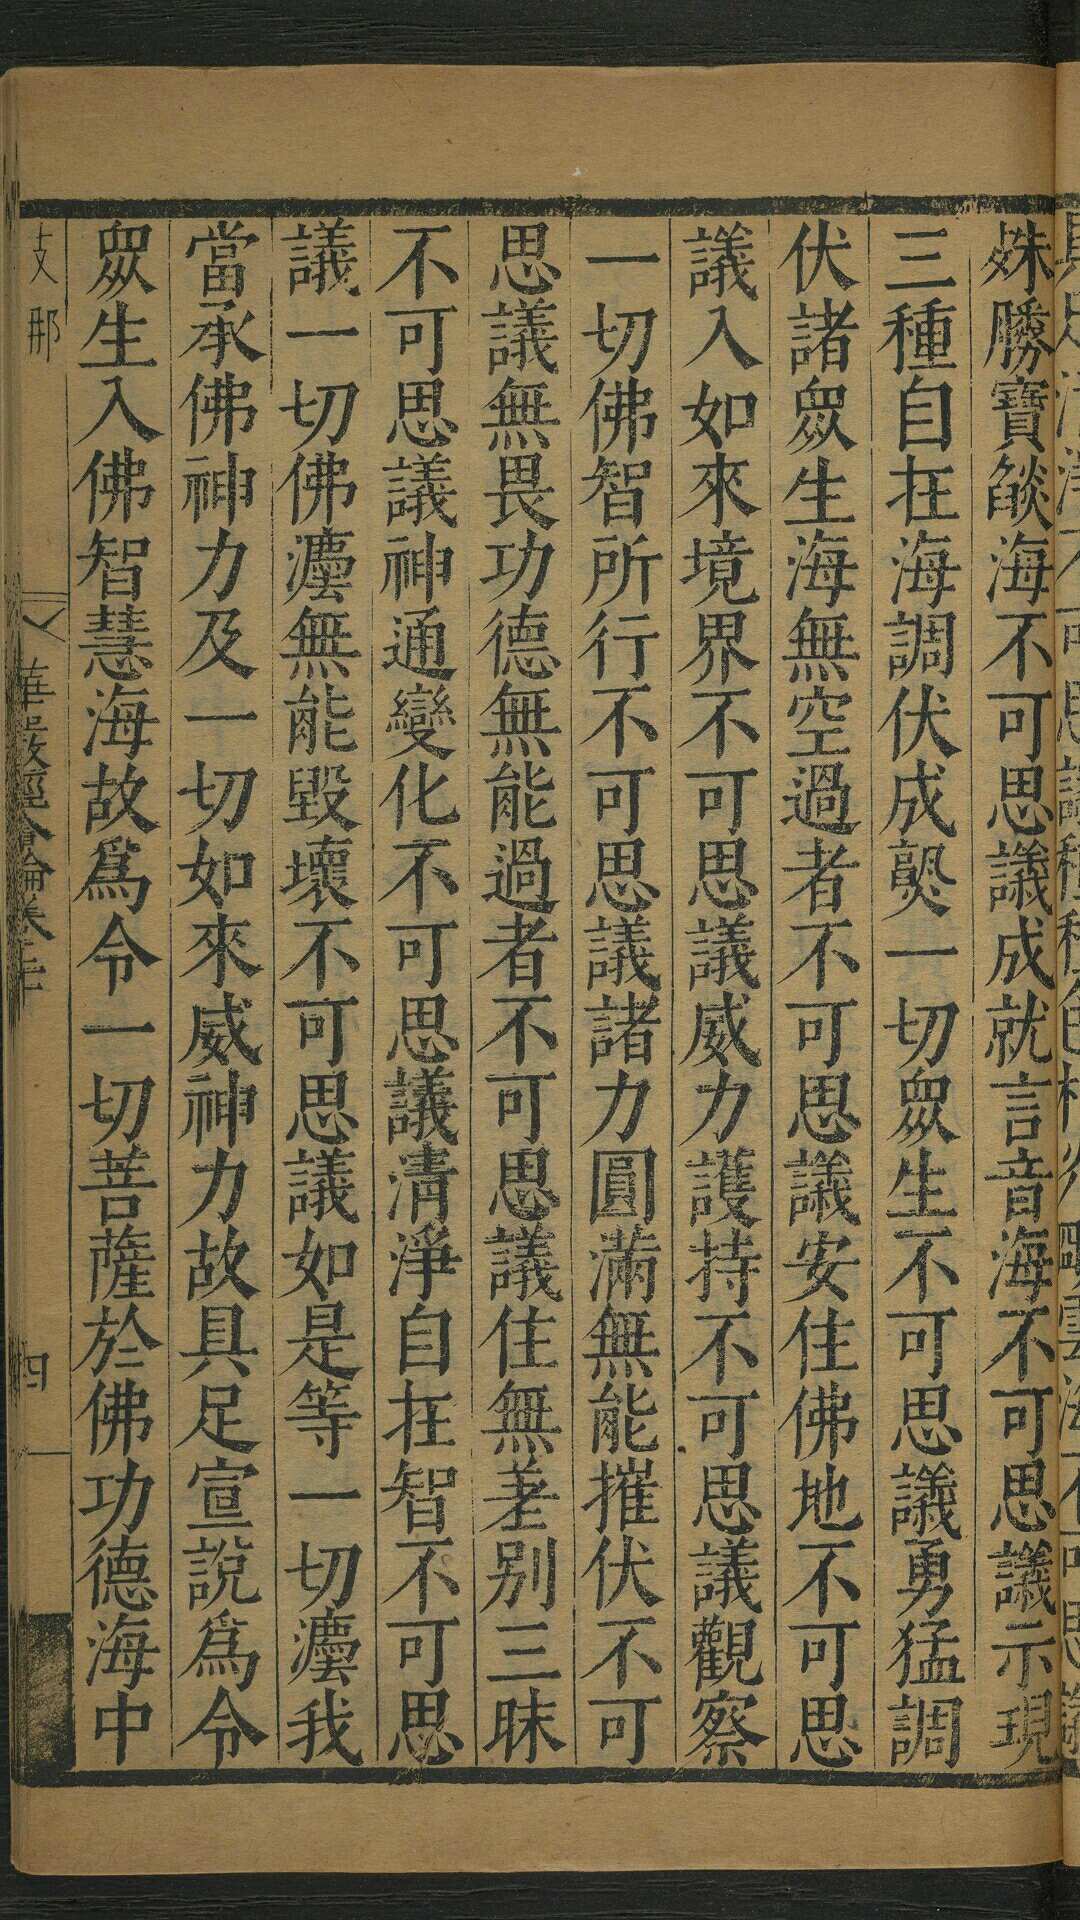 姝勝寶𦦨海不可思議成就言音海不可思議示現
三種自在海調伏成𤍨一切眾生不可思議勇猛調
伏諸眾生海無空過者不可思議安住佛地不可思
議入如來境界不可思議威力護持不可思議觀察
一切佛智所行不可思議諸力圓滿無能摧伏不可
思議無畏功德無能過者不可思議住無差別三昧
不可思議神通變化不可思議清淨自在智不可思
議一切佛灋無能毀壞不可思議如是等一切灋我
當承佛神力及一切如來威神力故具足宣說為令
眾生入佛智慧海故為令一切菩薩於佛功德海中
支那 華嚴經合論卷二十 四